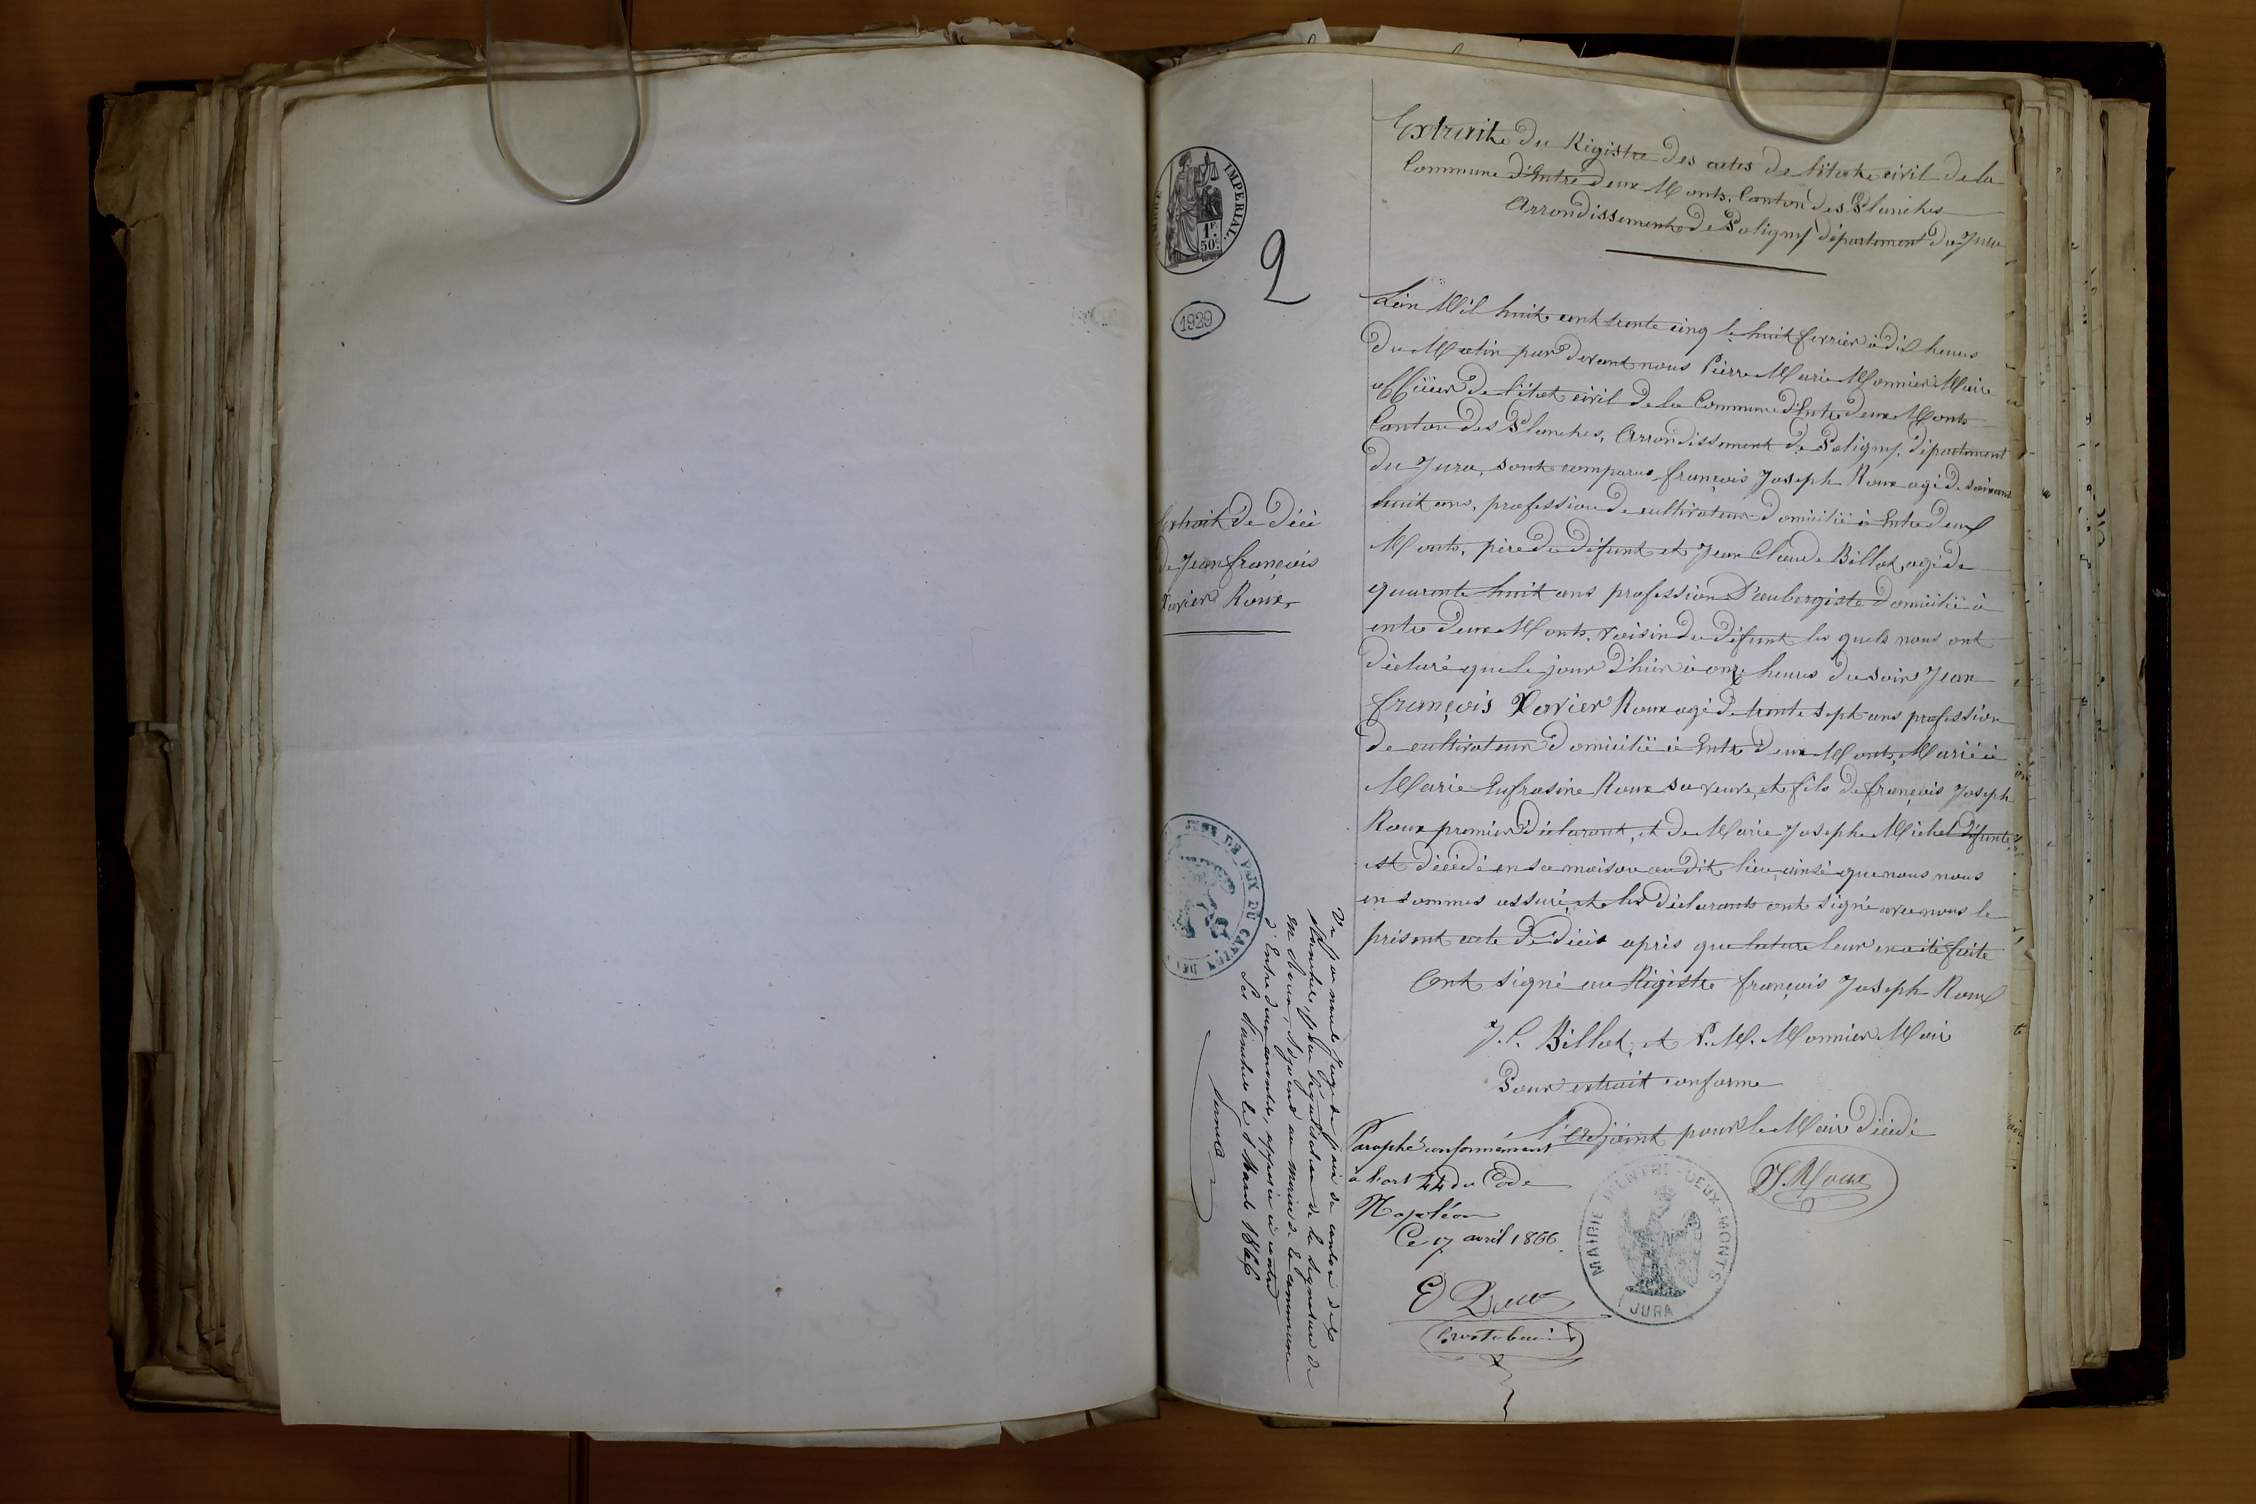 Extrait du Régistre des actes de l'état civil de la
Commune d'Entre deux Monts, Canton des Planches
Arrondissement de Poligny département du Jura
IMPERIAL
1F.
50c
2
1929
Extrait de décè
de Jean françois
Xavier Roux
L'an Mil huit cent trente cinq le huit fevrier à dix heures
du Matin par devant nous Pierre Marie Monnier Maire
officier de l'état civil de la Commune d'Entre deux Monts
Canton des Planches, Arrondissement de Poligny, département
du Jura, sont comparus françois Joseph Roux agé de soixante
huit ans, profession de cultivateur domicilié à Entre deux
Monts, père du défunt et Jean Claude Billot, agé de
quarante huit ans profession d'aubergiste domicilié à
entre deux Monts, voisin du défunt les quels nous ont
déclaré que le jour d'hier à onze heures du soir Jean
françois Xavier Roux agé de trente sept ans profession
de cultivateur domicilié à Entre deux Monts, Marié à
Marie Eufrasine Roux sa veuve, et fils de françois Joseph
Roux premier déclarant, et de Marie Josephe Michel défunte,
est décédé en sa maison au dit lieu, ainsi que nous nous
en sommes assuré, et les déclarants ont signé avec nous le
présent acte de décès après que lecture leur en a été faite
Ont signé au Régistre françois Joseph Roux
J. C. Billot, et P. M. Monnier Mair
Pour extrait conforme
l'adjoint pour le Maire décédé
Roux
MAIRIE D'ENTRE-DEUX-MONTS
JURA
Paraphé conformément
à l'art 44 du Code
Napoléon
Ce 17 avril 1866.
JUGE DE PAIX DU CANTON DES
Vu par nous Juge de paix du canton des
Planches, pour légalisation de la signature de
Mr Roux, adjoint au maire de la commune
d'Entre deux monts, apposée ci contre
Les Planches le 8 Mars 1866